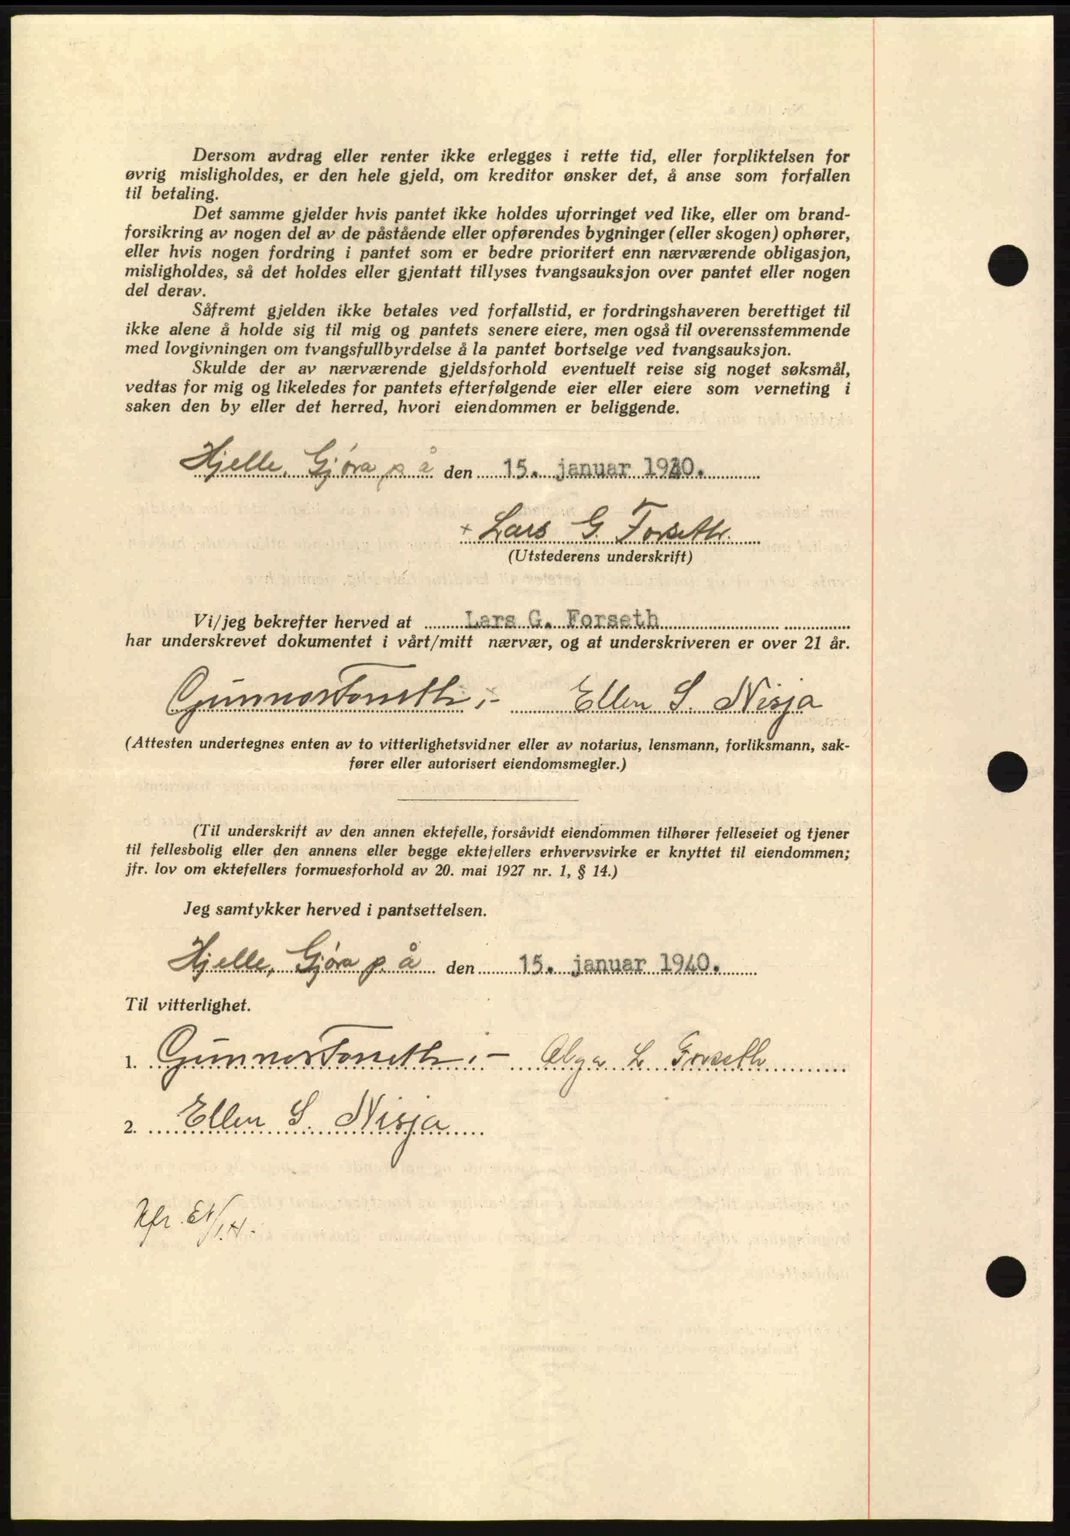 Dersom avdrag eller renter ikke erlegges i rette tid, eller forpliktelsen for
øvrig misligholdes, er den hele gjeld, om kreditor ønsker det, å anse som forfallen
til betaling.
Det samme gjelder hvis pantet ikke holdes uforringet ved like, eller om brand-
forsikring av nogen del av de påstående eller opførendes bygninger (eller skogen) ophører,
eller hvis nogen fordring i pantet som er bedre prioritert enn nærværende obligasjon,
misligholdes, så det holdes eller gjentatt tillyses tvangsauksjon over pantet eller nogen
del derav.
Såfremt gjelden ikke betales ved forfallstid, er fordringshaveren berettiget til
ikke alene å holde sig til mig og pantets senere eiere, men også til overensstemmende
med lovgivningen om tvangsfullbyrdelse å la pantet bortselge ved tvangsauksjon.
Skulde der av nærværende gjeldsforhold eventuelt reise sig noget søksmål,
vedtas for mig og likeledes for pantets efterfølgende eier eller eiere som verneting i
saken den by eller det herred, hvori eiendommen er beliggende.
Hjelle, Gjøra p å den 15. januar 1940.
+ Lars G. Forseth.
(Utstederens underskrift)
Vi/jeg bekrefter herved at Lars G. Forseth
har underskrevet dokumentet i vårt/mitt nærvær, og at underskriveren er over 21 år.
Gunnor Forseth :- Ellen S. Nisja
(Attesten undertegnes enten av to vitterlighetsvidner eller av notarius, lensmann, forliksmann, sak-
fører eller autorisert eiendomsmegler.)
(Til underskrift av den annen ektefelle, forsåvidt eiendommen tilhører felleseiet og tjener
til fellesbolig eller den annens eller begge ektefellers erhvervsvirke er knyttet til eiendommen;
jfr. lov om ektefellers formuesforhold av 20. mai 1927 nr. 1, § 14.)
Jeg samtykker herved i pantsettelsen.
Hjelle, Gjøra p. å den 15. januar 1940.
Til vitterlighet.
1. Gunnor Forseth :- Olga L Forseth
2. Ellen S. Nisja